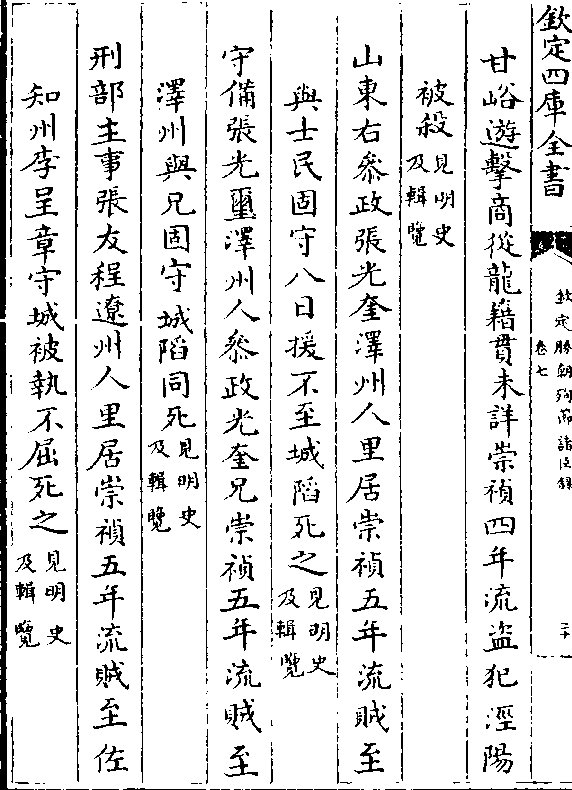 欽定四庫全書
欽定勝朝殉節諸臣錄
卷七
二十
甘峪遊擊商從龍籍貫未詳崇禎四年流盜犯涇陽
被殺見明史及輯覽
山東右叅政張光奎澤州人里居崇禎五年流賊至
與士民固守八日援不至城陷死之見明史及輯覽
守備張光璽澤州人叅政光奎兄崇禎五年流賊至
澤州與兄固守城陷同死見明史及輯覽
刑部主事張友程遼州人里居崇禎五年流賊至佐
知州李呈章守城被執不屈死之見明史及輯覽